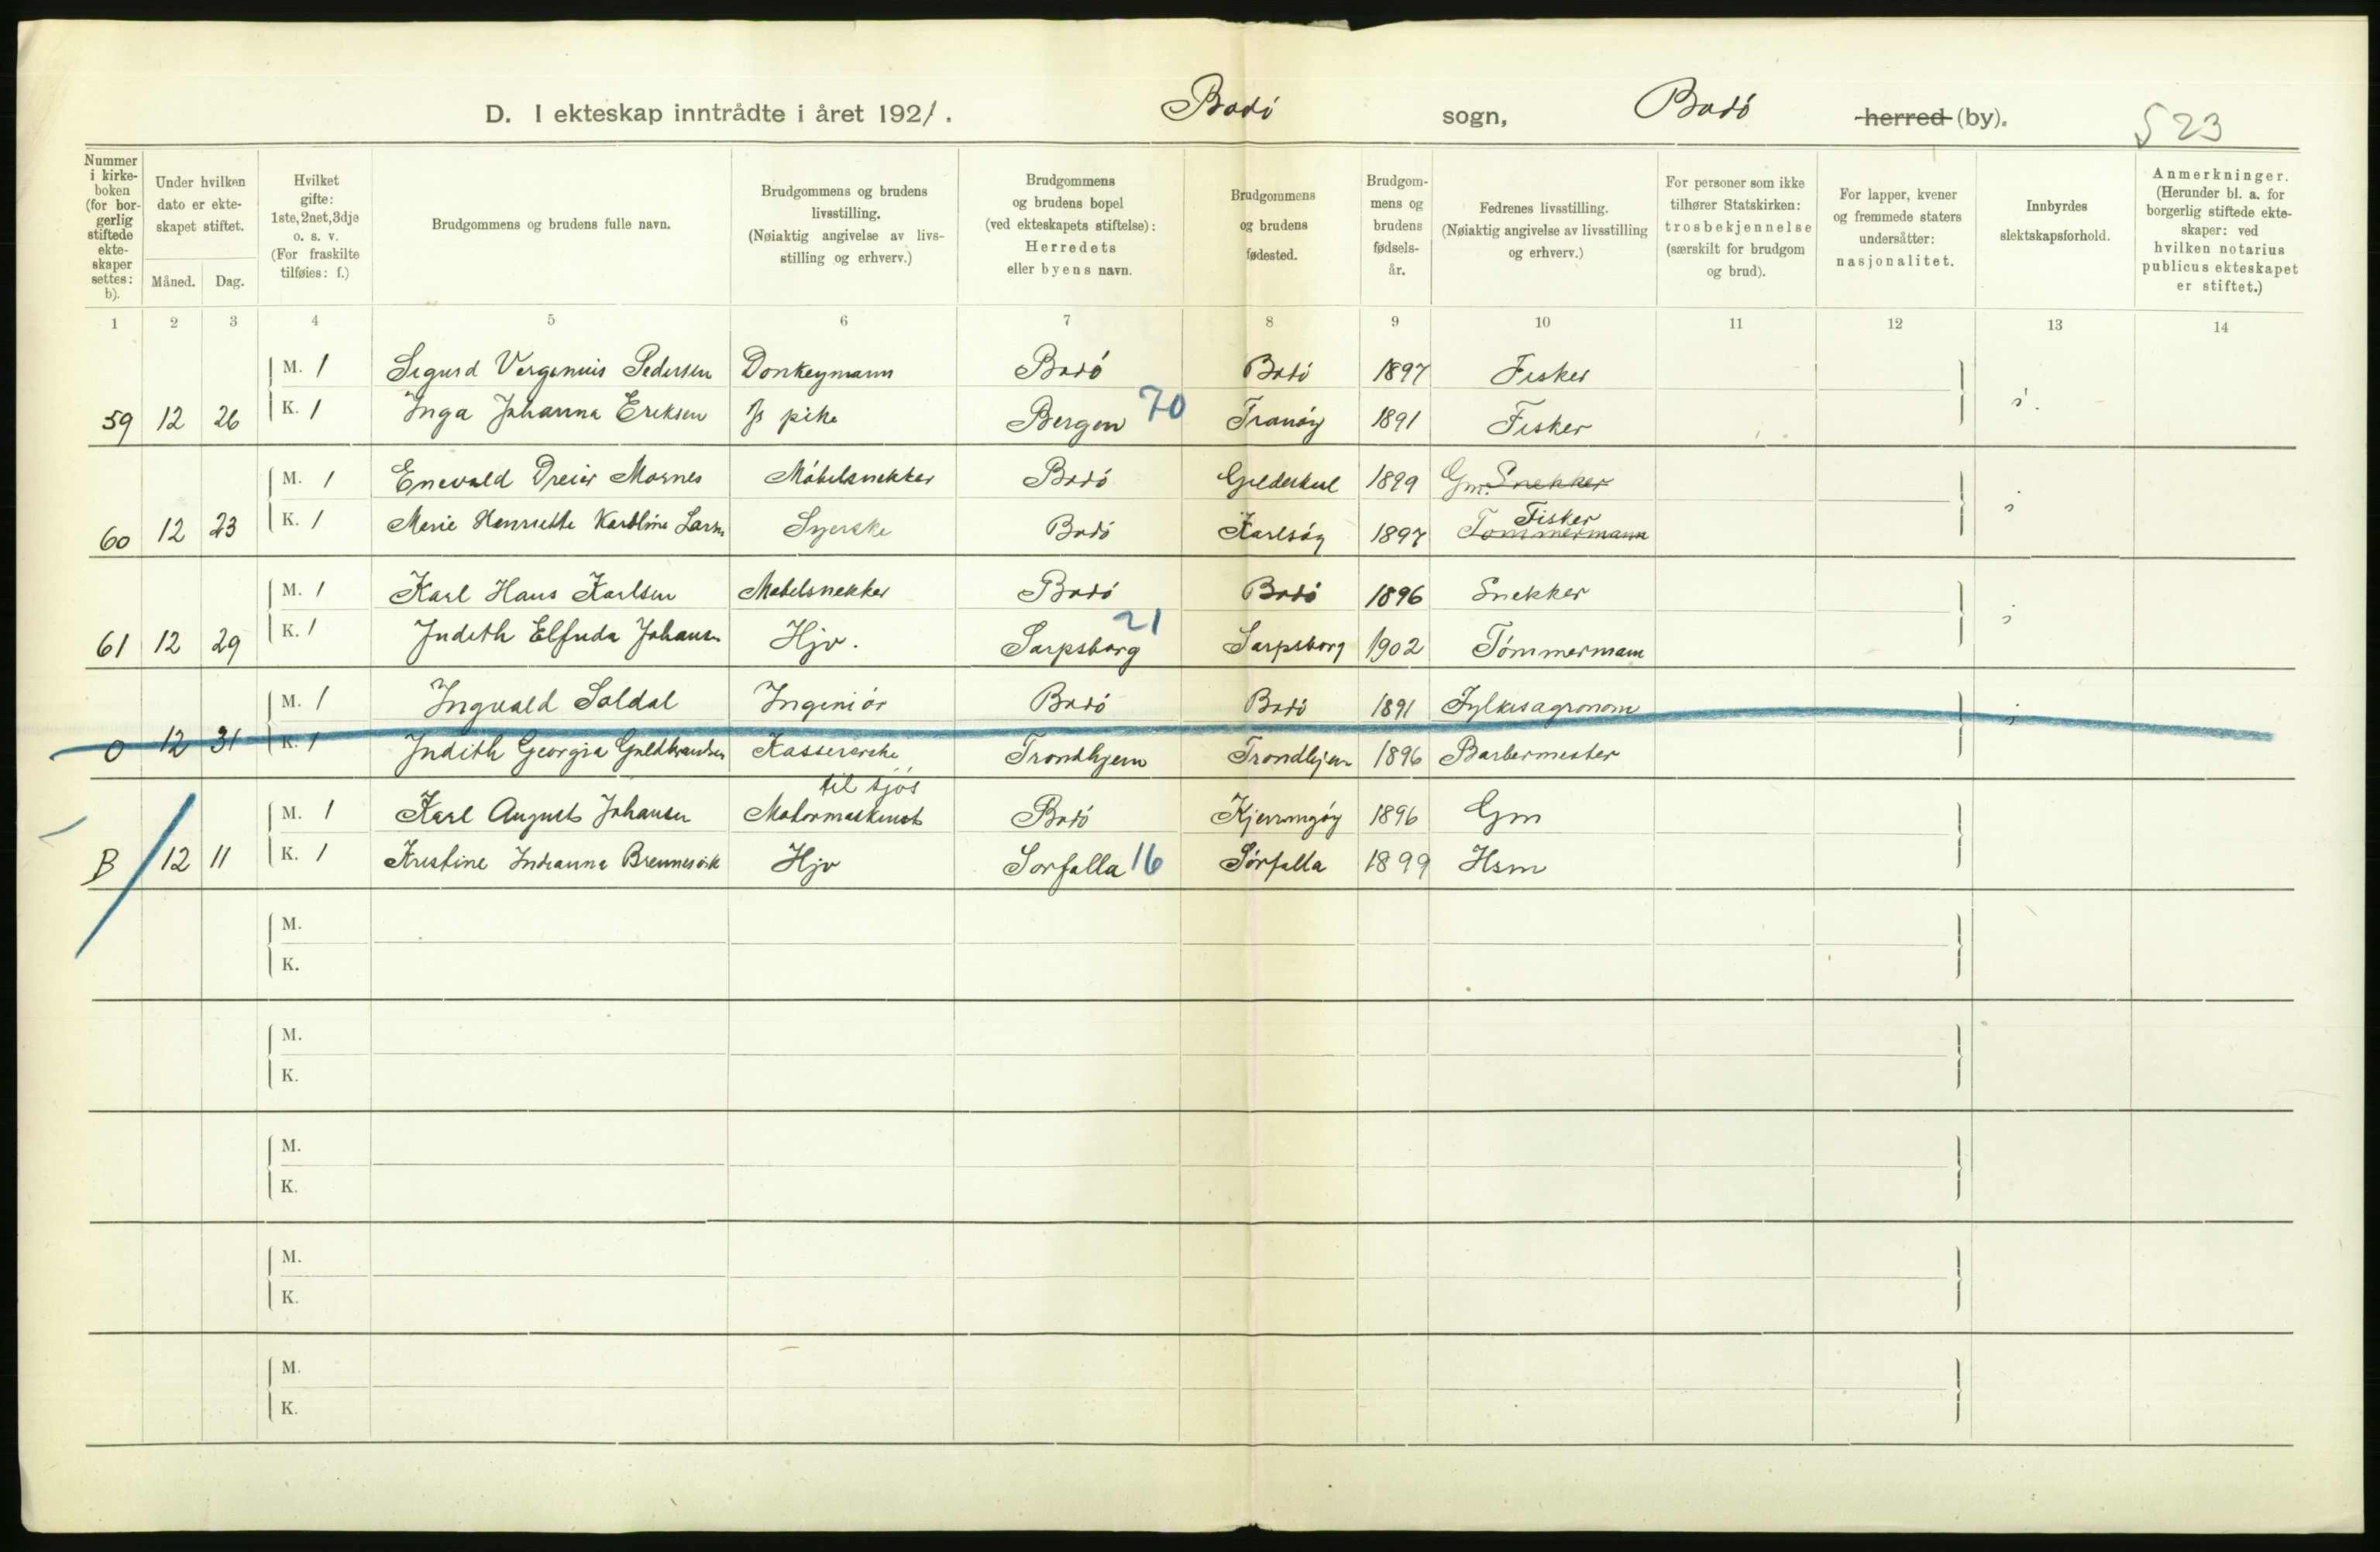 D. I ekteskap inntrådte i året 1921. Bodó sogn, Bodó herred (by). 523
Nummer i kirke-boken (for bor-gerlig stiftede ekte-skaper settes: b).
Under hvilken dato er ekte-skapet stiftet.
Måned. Dag.
Hvilket gifte: 1ste, 2net, 3dje o. s. v. (For fraskilte tilføies: f.)
Brudgommens og brudens fulle navn.
Brudgommens og brudens livsstilling. (Nøiaktig angivelse av livs-stilling og erhverv.)
Brudgommens og brudens bopel (ved ekteskapets stiftelse): Herredets eller byens navn.
Brudgommens og brudens fødested.
Brudgom-mens og brudens fødsels-år.
Fedrenes livsstilling. (Nøiaktig angivelse av livsstilling og erhverv.)
For personer som ikke tilhører Statskirken: trosbekjennelse (særskilt for brudgom og brud).
For lapper, kvener og fremmede staters undersåtter: nasjonalitet.
Innbyrdes slektskapsforhold.
Anmerkninger. (Herunder bl. a. for borgerlig stiftede ekte-skaper: ved hvilken notarius publicus ekteskapet er stiftet.)
1 2 3 4 5 6 7 8 9 10 11 12 13 14
M. 1 Sigurd Pedersen Donkeymann Bodó Bodó 1897 Fisker
59 12 26 K. 1 Inga Johanna Eriksen pike Bergen 70 Tranóy 1891 Fisker
M. 1 Enevald Dreier Mornes Móbelsnekker Bodó Gildeskal 1899 Gm. Snekker
Fisker
60 12 23 K. 1 Marie Henriette Larsen Syerske Bodó Karlsóy 1897 Tommermann
M. 1 Karl Hans Karlsen Mobelsnekker Bodó Bodó 1896 Snekker
61 12 29 K. 1 Judith Elfrida Johansen Hjv. Sarpsborg 21 Sarpsborg 1902 Tómmermann
M. 1 Ingvald Soldal Ingeniór Bodó Bodó 1891 Fylkesagronom
0 12 31 K. 1 Judith Georgia Guldbrandsen Kassererske Trondhjem Trondhjem 1896 Barbermester
til sjós
M. 1 Karl August Johansen Motormaskinist Bodó Kjerringóy 1896 Gm
B 12 11 K. 1 Kristine Indianna Brennesvik Hjv Sorfolla 16 Sórfolla 1899 Hsm
M.
K.
M.
K.
M.
K.
M.
K.
M.
K.